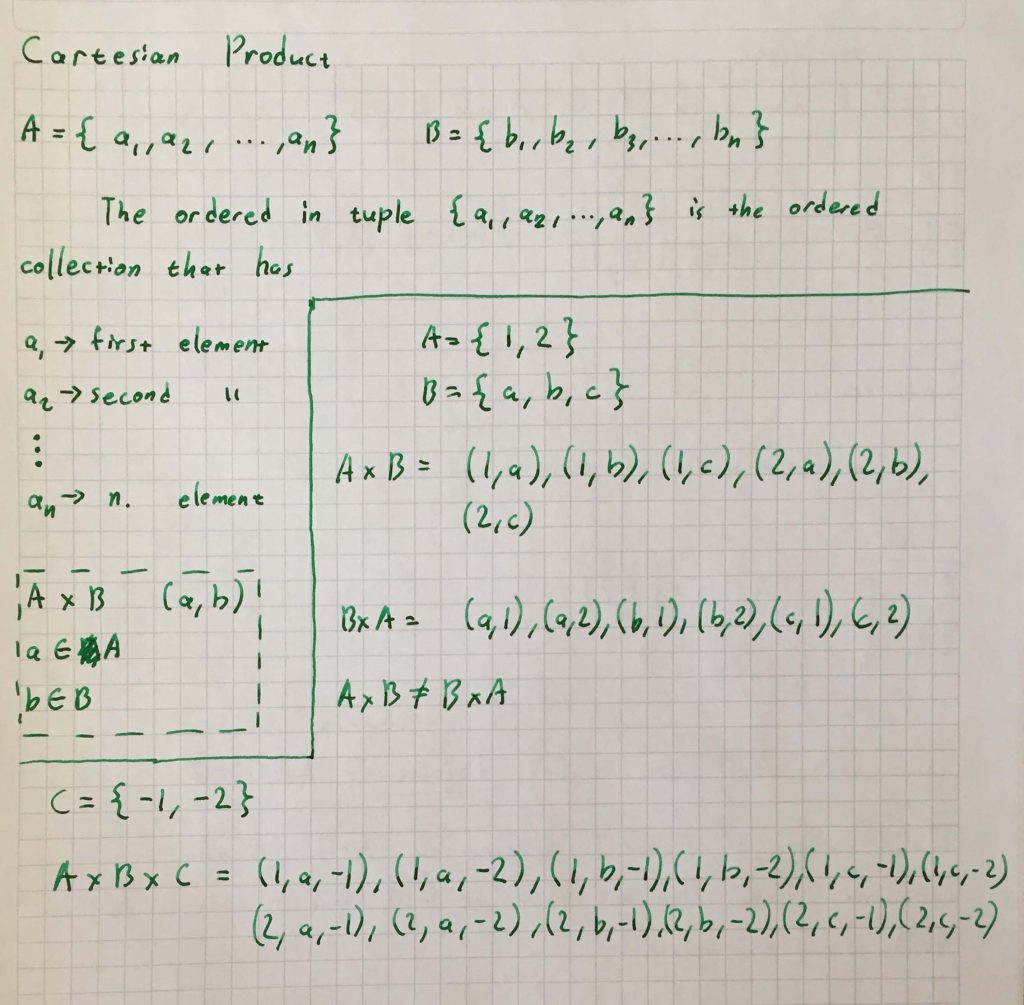 Cartesian Product
A = { a₁, a₂, ..., aₙ } B = { b₁, b₂, b₃, ..., bₙ }
The ordered in tuple { a₁, a₂, ..., aₙ } is the ordered
collection that has
a₁ → first element
a₂ → second "
⋮
aₙ → n. element
A x B (a, b)
a ∈ A
b ∈ B
A = { 1, 2 }
B = { a, b, c }
A x B = (1, a), (1, b), (1, c), (2, a), (2, b),
(2, c)
B x A = (a, 1), (a, 2), (b, 1), (b, 2), (c, 1), (c, 2)
A x B ≠ B x A
C = { -1, -2 }
A x B x C = (1, a, -1), (1, a, -2), (1, b, -1), (1, b, -2), (1, c, -1), (1, c, -2)
(2, a, -1), (2, a, -2), (2, b, -1), (2, b, -2), (2, c, -1), (2, c, -2)